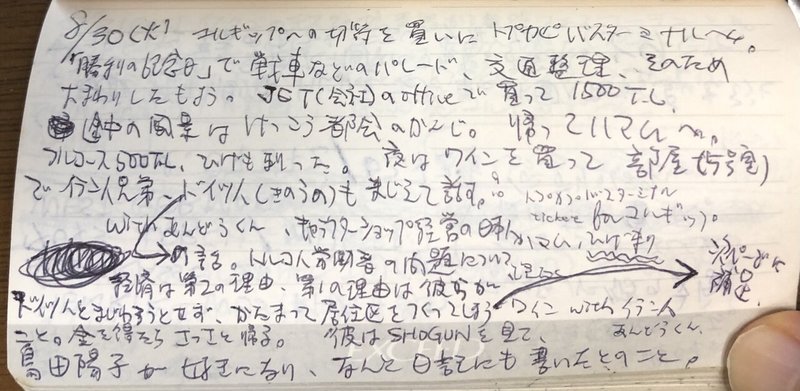 8/30(火) ユルギップへの切符を買いにトプカピバスターミナルへ。
「勝利の記念日」で戦車などのパレード、交通整理、そのため
大まわりしたもよう。JET(会社)のofficeで買って1500TL。
途中の風景はけっこう都会のかんじ。帰ってハマムへ。
フルコース500TL、ひげも剃った。夜はワインを買って部屋(5号室)
でイラン人兄弟、ドイツ人(きのうの)もまじえて話す。
トプカプバスターミナル
ticket for ユルギップ。
withあんどうくん、キャラクターショップ経営の日本人
ハマム、ひげ剃り
の話。トルコ人労働者の問題について
経済は第2の理由、第1の理由は彼らが
ドイツ人とまじわろうとせず、かたまって居住区をつくってしまう
ワイン with イラン人
あんどうくん
こと。金を得たらさっさと帰る。彼はSHOGUNを見て、
島田陽子が好きになり、なんと日記にも書いたとのこと。